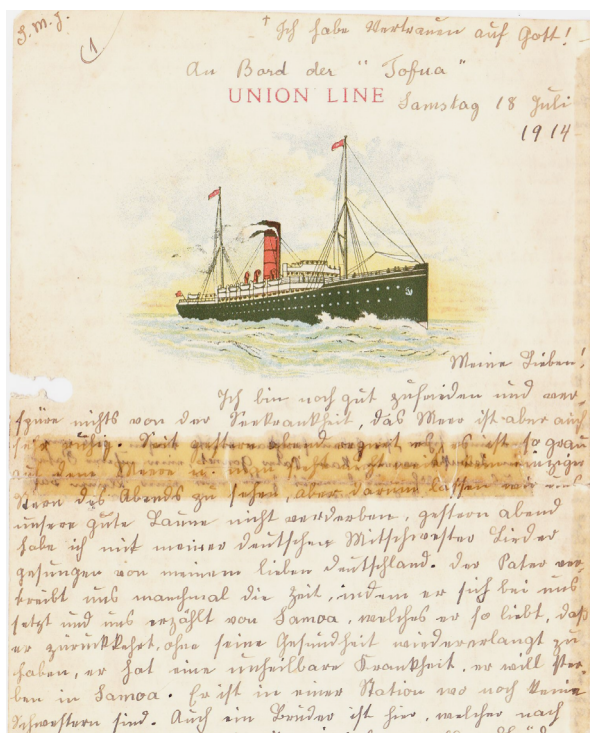 S. M. J.
(1
† Ich habe Vertrauen auf Gott!
An Bord der "Tofua"
UNION LINE
Samstag 18 Juli
1914
Meine Lieben!
Ich bin noch gut zufrieden und ver-
spüre nichts von der Seekrankheit, das Meer ist aber auch
sehr ruhig. Seit gestern abend regnet es, es ist so grau
auf dem Meer einziger
Stern des Abends zu sehen, aber darum lassen wir uns
unsere gute Laune nicht verderben, gestern abend
habe ich mit meiner deutschen Mitschwester Lieder
gesungen von meinem lieben Deutschland. Der Pater ver-
treibt uns manchmal die Zeit, indem er sich bei uns
setzt und uns erzählt von Samoa, welches er so liebt, daß
er zurückkehrt, ohne seine Gesundheit wiedererlangt zu
haben, er hat eine unheilbare Krankheit, er will ster-
ben in Samoa. Er ist in einer Station wo noch keine
Schwestern sind. Auch ein Bruder ist hier, welcher nach